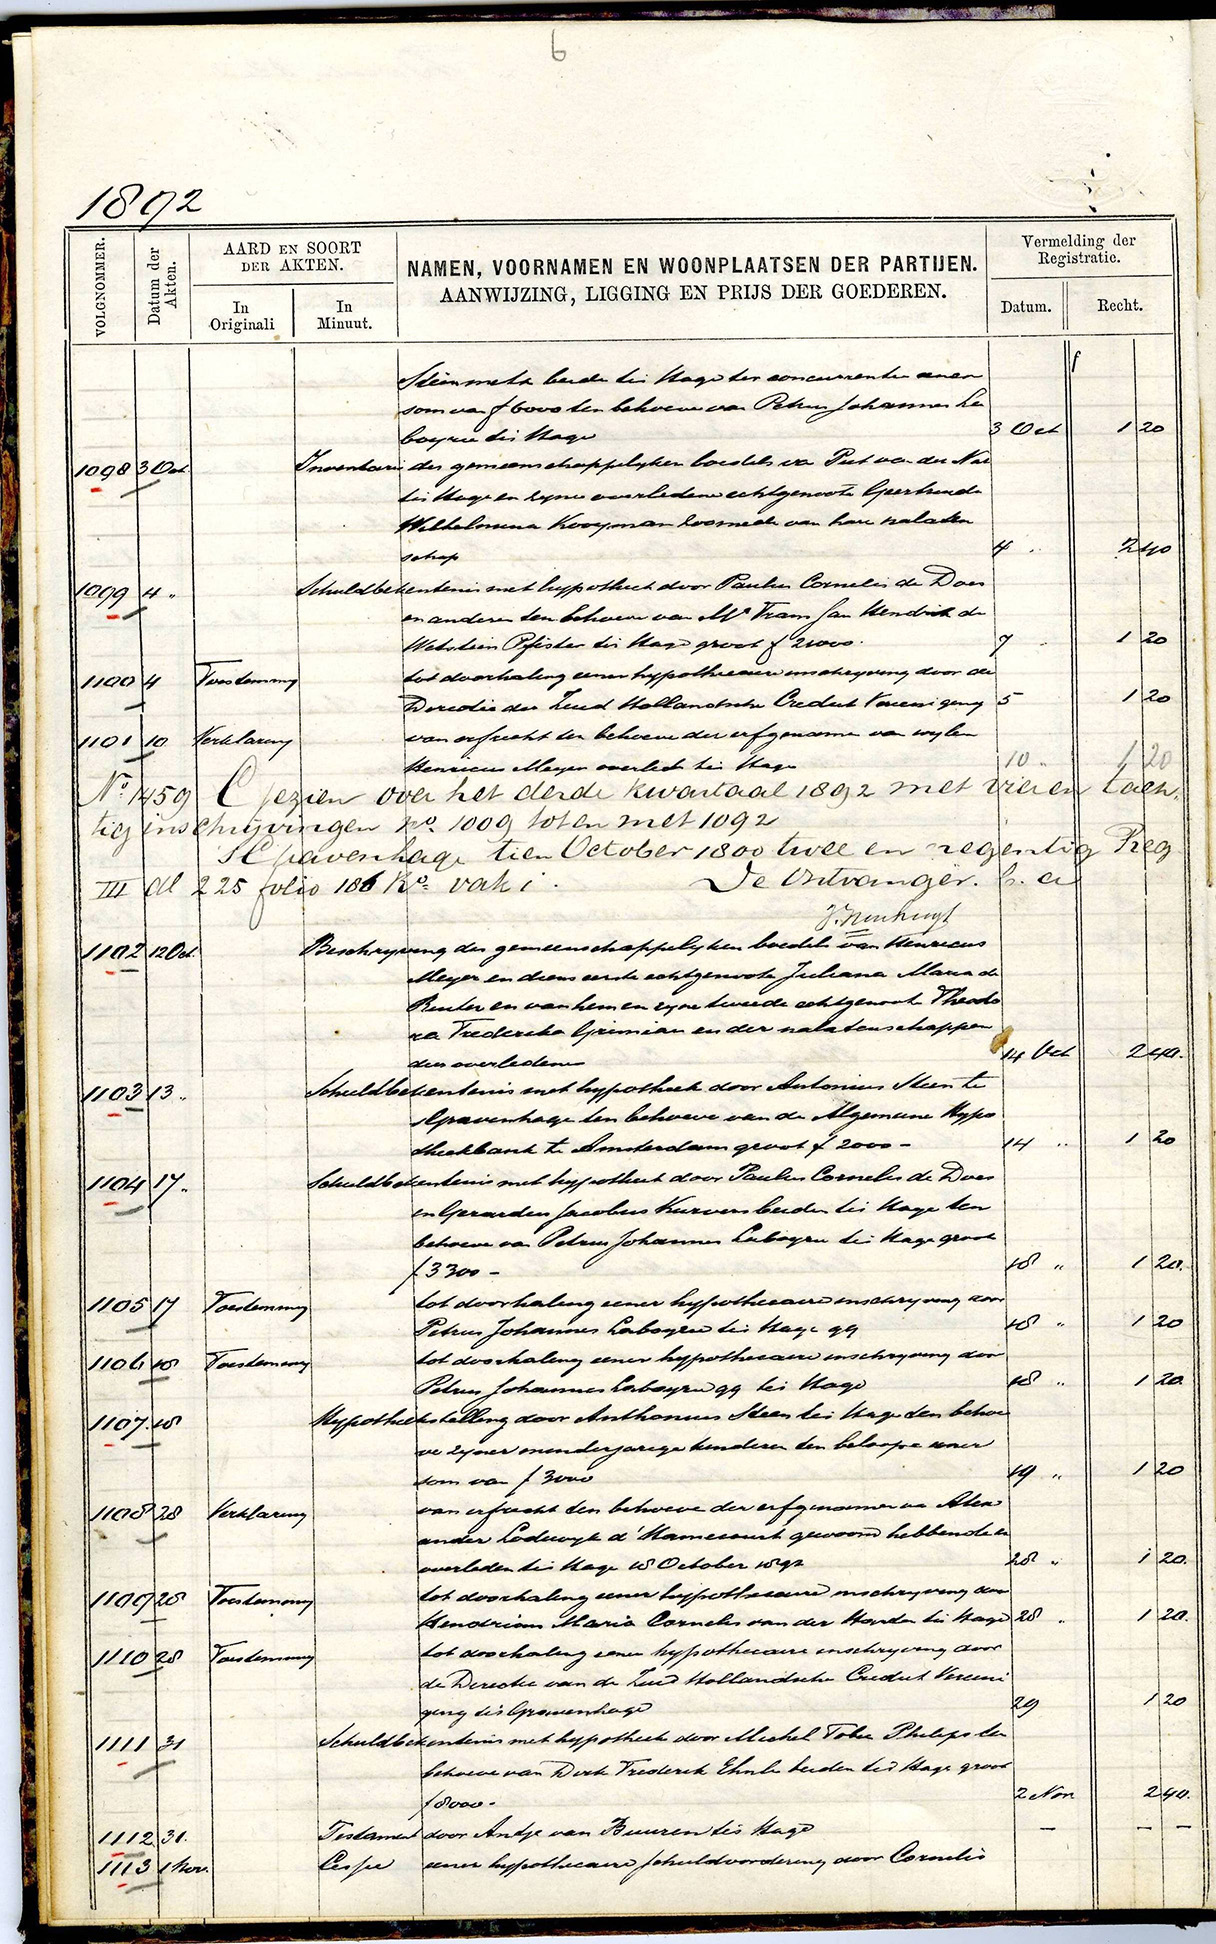 6
1892
VOLGNOMMER.
Datum der Akten.
AARD EN SOORT DER AKTEN.
In Originali
In Minuut.
NAMEN, VOORNAMEN EN WOONPLAATSEN DER PARTIJEN.
AANWIJZING, LIGGING EN PRIJS DER GOEDEREN.
Vermelding der Registratie.
Datum.
Recht.
f
Steinmetz beide te 's Hage ter concurrentie eener
som van f 6000 ten behoeve van Petrus Johannes La
boyrie te 's Hage 3 Oct 1 20
1098 3 Oct Inventaris der gemeenschappelyken boedels van Piet van der
te 's Hage en zyne overledene echtgenoote Geertruida
Wilhelmina Kooyman zoomede van hare nalaten
schap 4 " 2 40
1099 4 " Schuldbekentenis met hypotheek door Paulus Cornelis de Does
en anderen ten behoeve van Mr Frans Jan Hendrik de
Wetstein Pfister te 's Hage groot f 21000. 7 1 20
1100 4 Toestemming tot doorhaling eener hypothecaire inschryving door de
Directie der Zuid Hollandsche Crediet Vereeniging 5 1 20
1101 10 Verklaring van erfrecht ten behoeve der erfgenamen van wylen
Henricus Meyer overleden te 's Hage 10 " 1 20
No 1459 Gezien over het derde kwartaal 1892 met vier en tach
tig inschrijvingen no. 1009 tot en met 1092
's Gravenhage tien October 1800 twee en negentig Reg
III dl 225 folio 186 Ro. vak i. De Ontvanger.
1102 12 Oct. Beschryving der gemeenschappelyken boedels van Henricus
Meyer en diens eerste echtgenoote Juliana Maria de
Ruiter en van hem en zyne tweede echtgenoote Theodo
ra Frederika Grimian en der nalatenschappen
der overledene 14 Oct 2 40.
1103 13 " Schuldbekentenis met hypotheek door Antonius Steen te
's Gravenhage ten behoeve van de Algemeene Hypo
theekbank te Amsterdam groot f 2000 - 14 " 1 20
1104 17 " Schuldbekentenis met hypotheek door Paulus Cornelis de Does
en Gerardus Jacobus Kurvers beiden te 's Hage ten
behoeve van Petrus Johannes Laboyrie te 's Hage groot
f 3300 - 18 " 1 20.
1105 17 Toestemming tot doorhaling eener hypothecaire inschryving door
Petrus Johannes Laboyrie te 's Hage qq 18 " 1 20
1106 18 Toestemming tot doorhaling eener hypothecaire inschryving door
Petrus Johannes Laboyrie qq te 's Hage 18 " 1 20.
1107. 18 Hypotheekstelling door Anthonius Steen te 's Hage ten behoe
ve zyner minderjarige kinderen ten beloope eener
som van f 3000 19 " 1 20
1108 28 Verklaring van erfrecht ten behoeve der erfgenamen van Alex
ander Lodewyk d'Hamecourt gewoond hebbende en
overleden te 's Hage 18 October 1892 28 " 1 20.
1109 28 Toestemming tot doorhaling eener hypothecaire inschryving door
Hendrian Maria Cornelis van der Horden te 's Hage 28 " 1 20.
1110 28 Toestemming tot doorhaling eener hypothecaire inschryving door
de Directie van de Zuid Hollandsche Crediet Vereeni
ging te 's Gravenhage 29 1 20
1111 31 Schuldbekentenis met hypotheek door Michel Tobie Philips ten
behoeve van Dirk Frederik beiden te 's Hage groot
f 8000 - 2 Nov 2 40.
1112 31. Testament door Antje van Buuren te 's Hage — — —
1113 1 Nov. Cessie eener hypothecaire schuldvordering door Cornelis